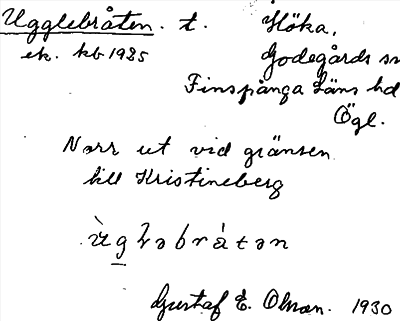 Ugglebråten. t. Höka,
ek. kb 1925 Godegårds sn
Finspånga läns hd
Ögl.
Norr ut vid gränsen
till Kristineberg
Gustaf E. Olsson. 1930